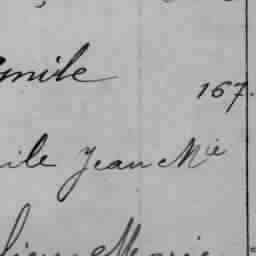 Emile
167.
ile Jean Mie
Marie